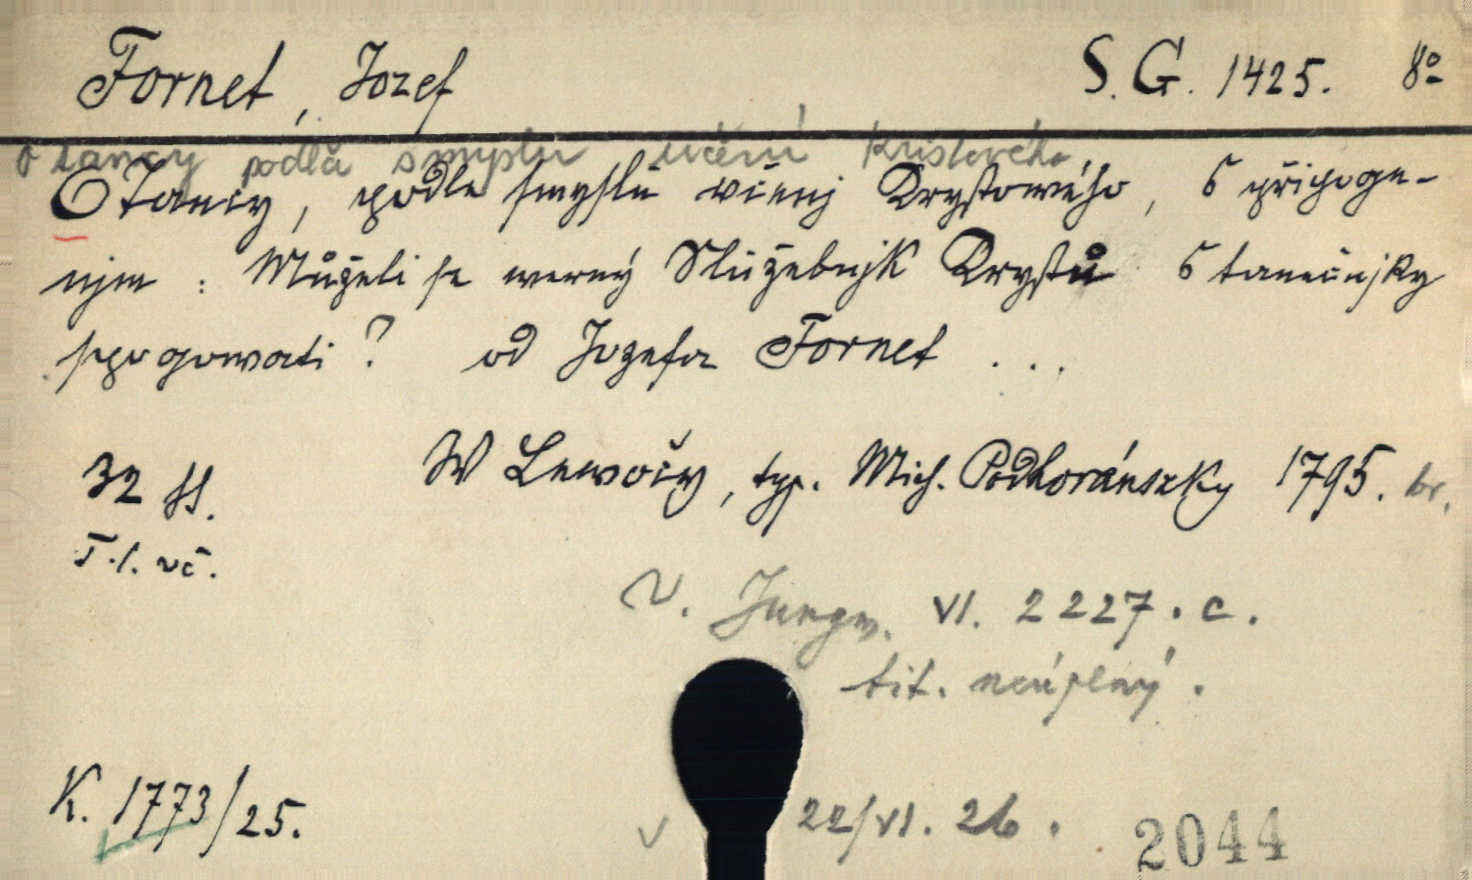 Fornet, Jozef
S. G. 1425. 8º
o tancy podla smyslu učení Kristového
O Tancy, podle smyslu včenj Krystowého, s připoge-
njm : Můželi se werný Služebnjk Krystů s tanečnjky
spogowati? od Jozefa Fornet ...
32 ss. W Lewočy, typ. Mich. Podhoránszky 1795. br.
T. l. vč.
V. Jungm. VI. 2227. c.
tit. neúplný.
K. 1773/25.
v 22/VI. 26.
2044